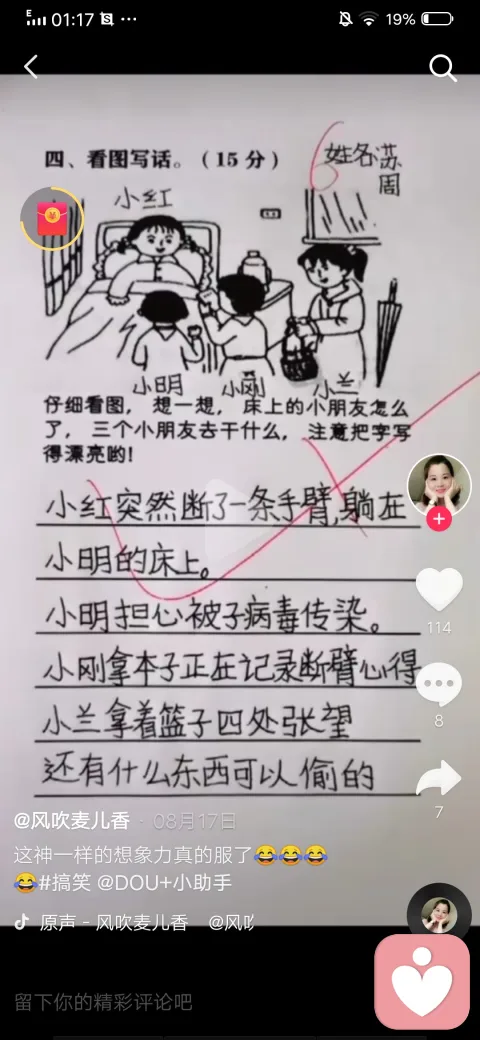 01:17
19%
四、看图写话。（15分）
6
姓名:苏
周
小红
小明
小刚
小兰
仔细看图，想一想，床上的小朋友怎么
了，三个小朋友去干什么，注意把字写
得漂亮哟!
小红突然断了一条手臂,躺在
小明的床上。
小明担心被子病毒传染。
小刚拿本子正在记录断臂心得
小兰拿着篮子四处张望
还有什么东西可以偷的
114
8
7
@风吹麦儿香 · 08月17日
这神一样的想象力真的服了😂😂😂
😂#搞笑 @DOU+小助手
原声 - 风吹麦儿香 @风吹
留下你的精彩评论吧